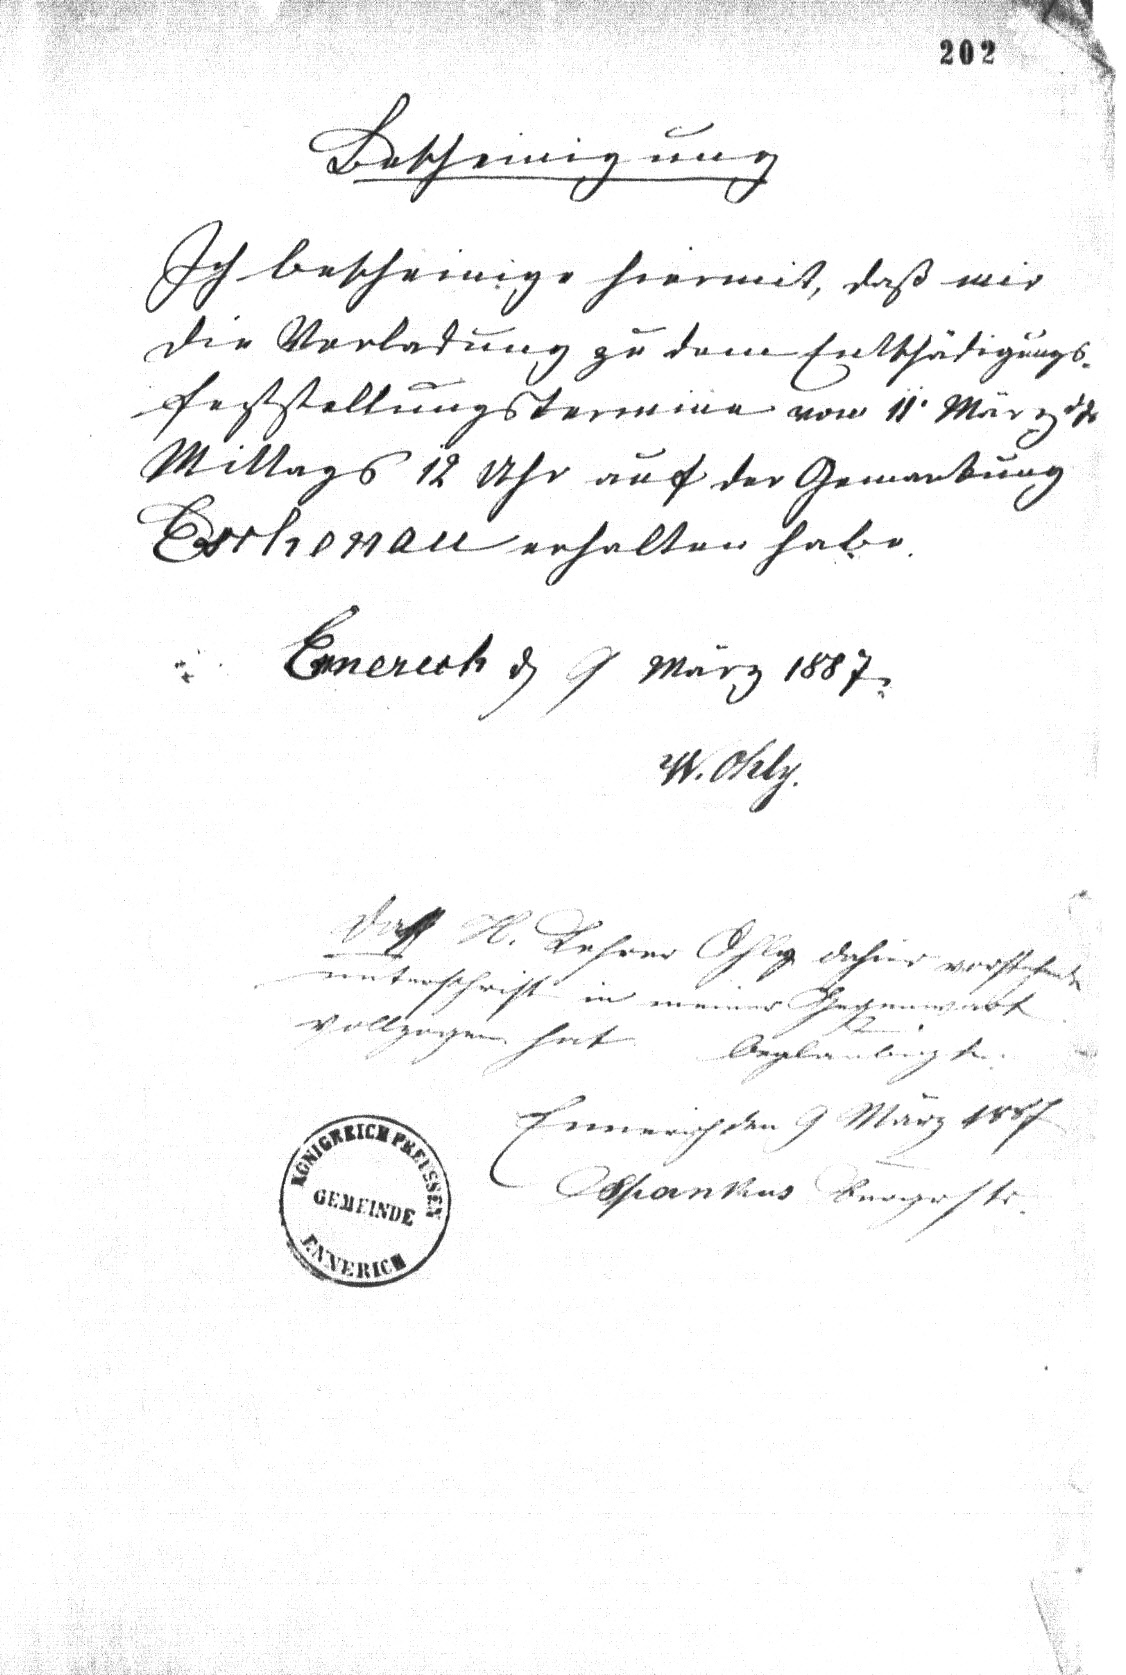 202
Bescheinigung
Ich bescheinige hiermit, daß mir
die Vorladung zu dem Entschädigungs-
feststellungstermine vom 11. März d. Js
Mittags 12 Uhr auf der Gemarkung
Eschenau erhalten habe.
Ennerich d 9 März 1887.
W. Ohly.
Daß H. Lehrer Ohly dahier vorstehende
unterschrift in meiner Gegenwart
vollzogen hat beglaubigt
Ennerich den 9 März 1887
Spankus Bürgstr.
KÖNIGREICH PREUSSEN
GEMEINDE
ENNERICH